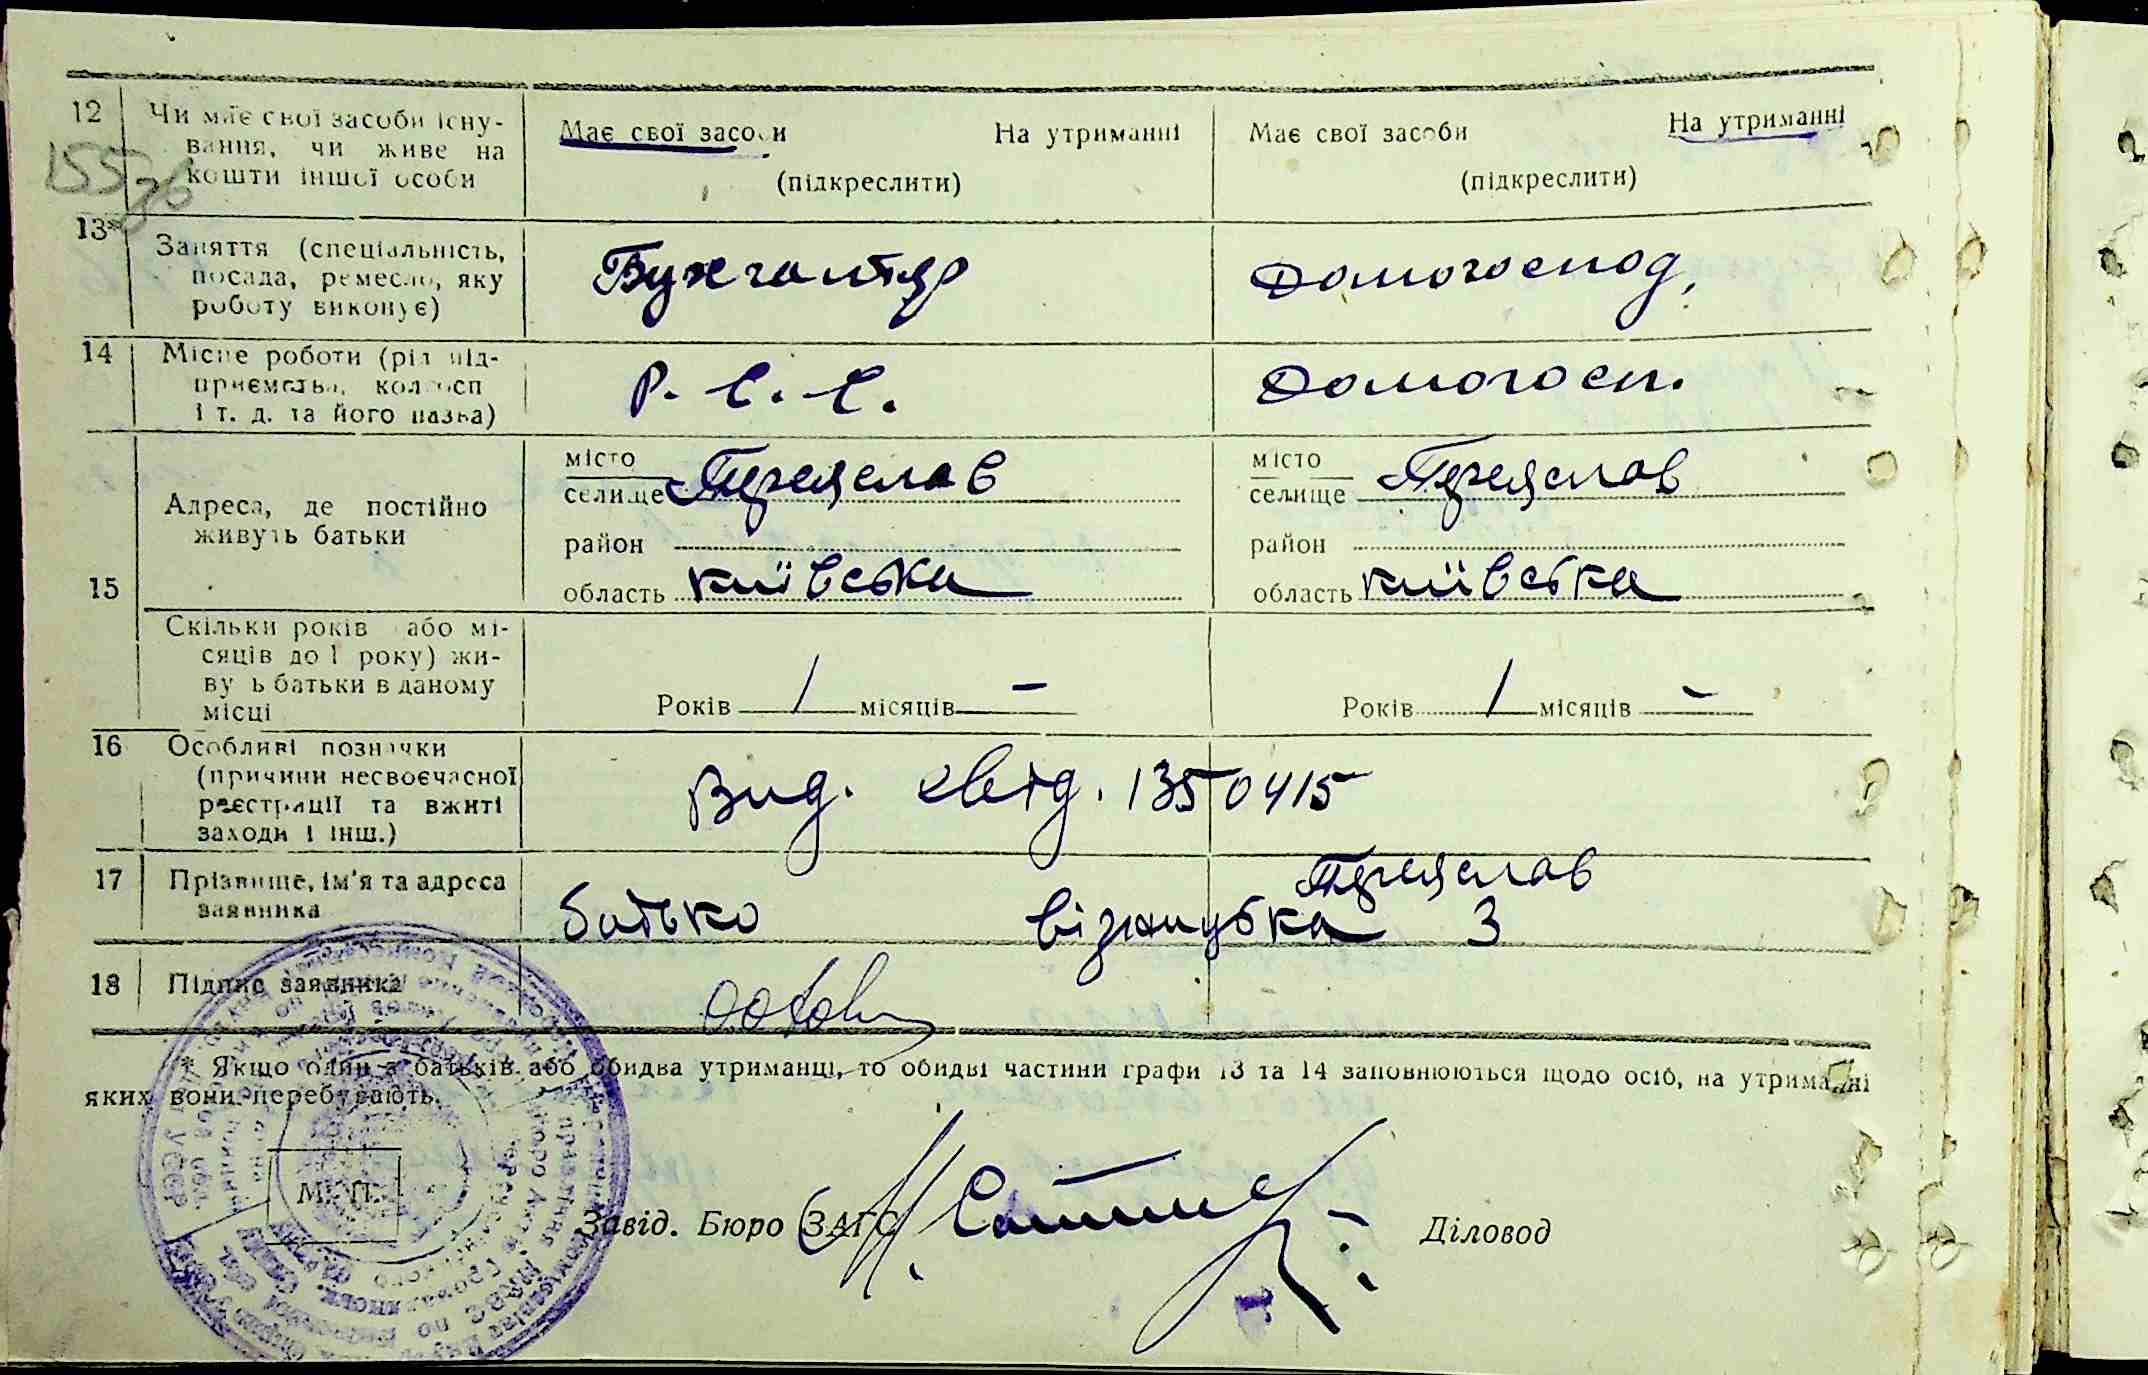 12
Чи має свої засоби існу-
вання, чи живе на
кошти іншої особи
Має свої засоби На утриманні
(підкреслити)
Має свої засоби На утриманні
(підкреслити)
155
13*
Заняття (спеціальність,
посада, ремесло, яку
роботу виконує)
Бухгалтер
Домогоспод.
14
Місце роботи (рід під-
приємства, колгосп
і т. д. та його назва)
Р. С. С.
Домогосп.
15
Адреса, де постійно
живуть батьки
місто
селище Переяслав
район
область київська
місто
селище Переяслав
район
область київська
Скільки років або мі-
сяців до 1 року) жи-
вуть батьки в даному
місці
Років 1 місяців –
Років 1 місяців –
16
Особливі позначки
(причини несвоєчасної
реєстрації та вжиті
заходи і інш.)
Вид. свід. 135 0415
17
Прізвище, ім'я та адреса
заявника
Переяслав
батько 3
18
Підпис заявника
* Якщо один з батьків або обидва утриманці, то обидві частини графи 13 та 14 заповнюються щодо осіб, на утриманні
яких вони перебувають.
М. П.
Завід. Бюро ЗАГС
Діловод